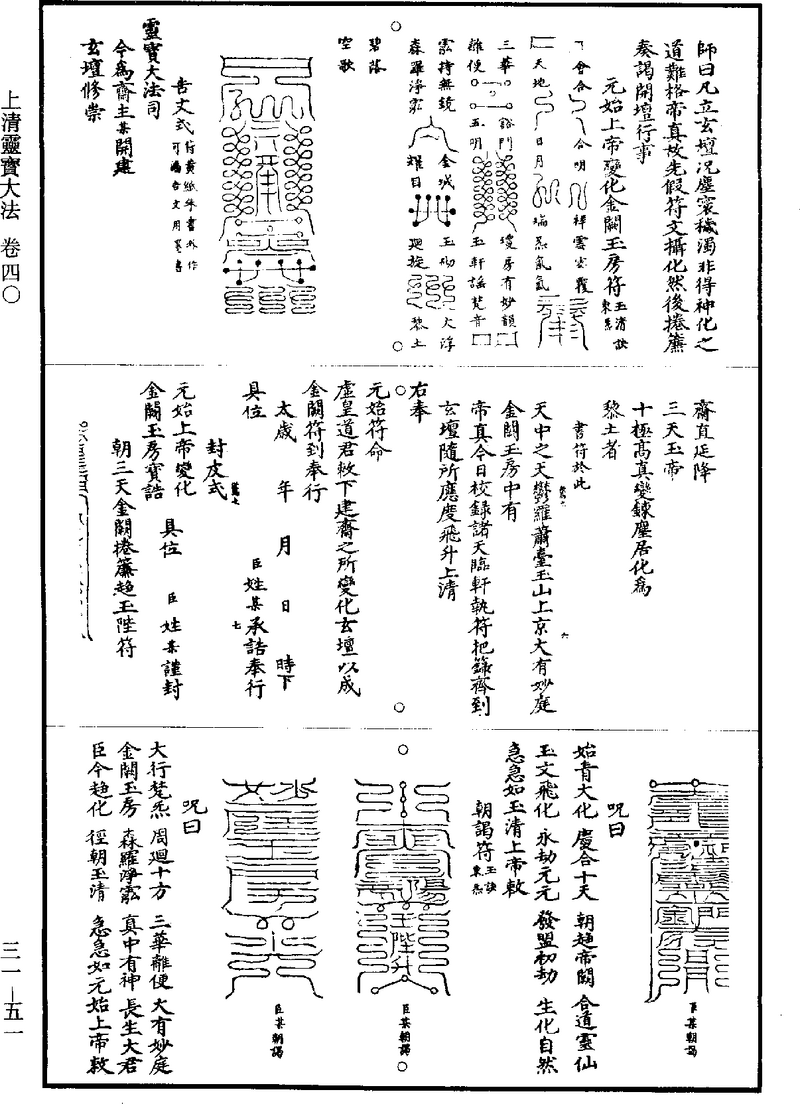 上清靈寶大法　卷四〇
三一—五一
師曰凡立玄壇況塵寰穢濁非得神化之
道難格帝真故先假符文攝化然後捲簾
奏謁開壇行事
元始上帝變化金闕玉房符 玉清訣 東炁
會合　合明　祥雲
天地　日月　瑞炁氤氳
三華　豁門　瓊房有妙韻
離便　五明　玉軒謠梵音
雲持無鏡　金城　玉砌　大浮
森羅淨泓　耀目　廻旋　黎土
碧落
空歌
告文式 符黃紙朱書外作 可漏告文用墨書
靈寶大法司
今為齋主某開建
玄壇修崇
齋直延降
三天玉帝
十極高真變鍊塵居化為
黎土者
書符於此
天中之天鬱羅蕭臺玉山上京大有妙庭
金闕玉房中有
帝真今日校錄諸天臨軒執符把籙齊到
玄壇隨所應度飛升上清
右奉
元始符命
虛皇道君敕下建齋之所變化玄壇以成
金闕符到奉行
太歲　年　月　日　時下
具位　臣姓某承誥奉行
封皮式
元始上帝變化　具位　臣姓某謹封
金闕玉房寶誥
朝三天金闕捲簾趨玉陛符
臣某朝謁
呪曰
始青大化　慶合十天　朝趨帝闕　合道靈仙
玉文飛化　永劫元元　發盟初劫　生化自然
急急如玉清上帝敕
朝謁符 玉訣 東炁
臣某朝謁
臣某朝謁
呪曰
大行梵炁　周廻十方　三華離便　大有妙庭
金闕玉房　森羅淨泓　真中有神　長生大君
臣今趨化　徑朝玉清　急急如元始上帝敕